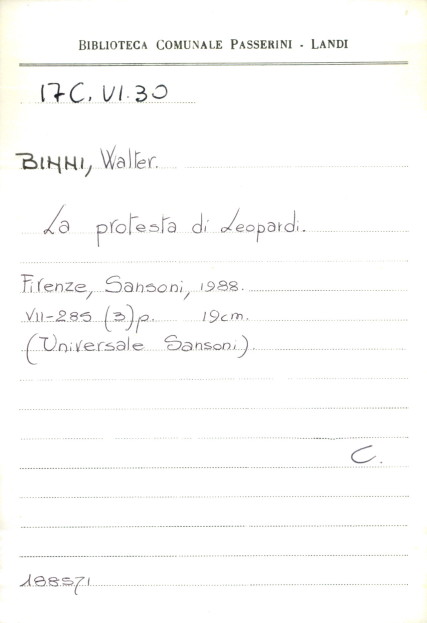 BIBLIOTECA COMUNALE PASSERINI - LANDI
17C. VI. 30
BINNI, Walter.
La protesta di Leopardi.
Firenze, Sansoni, 1988.
VII-285 (3) p. 19cm.
(Universale Sansoni).
C.
188571